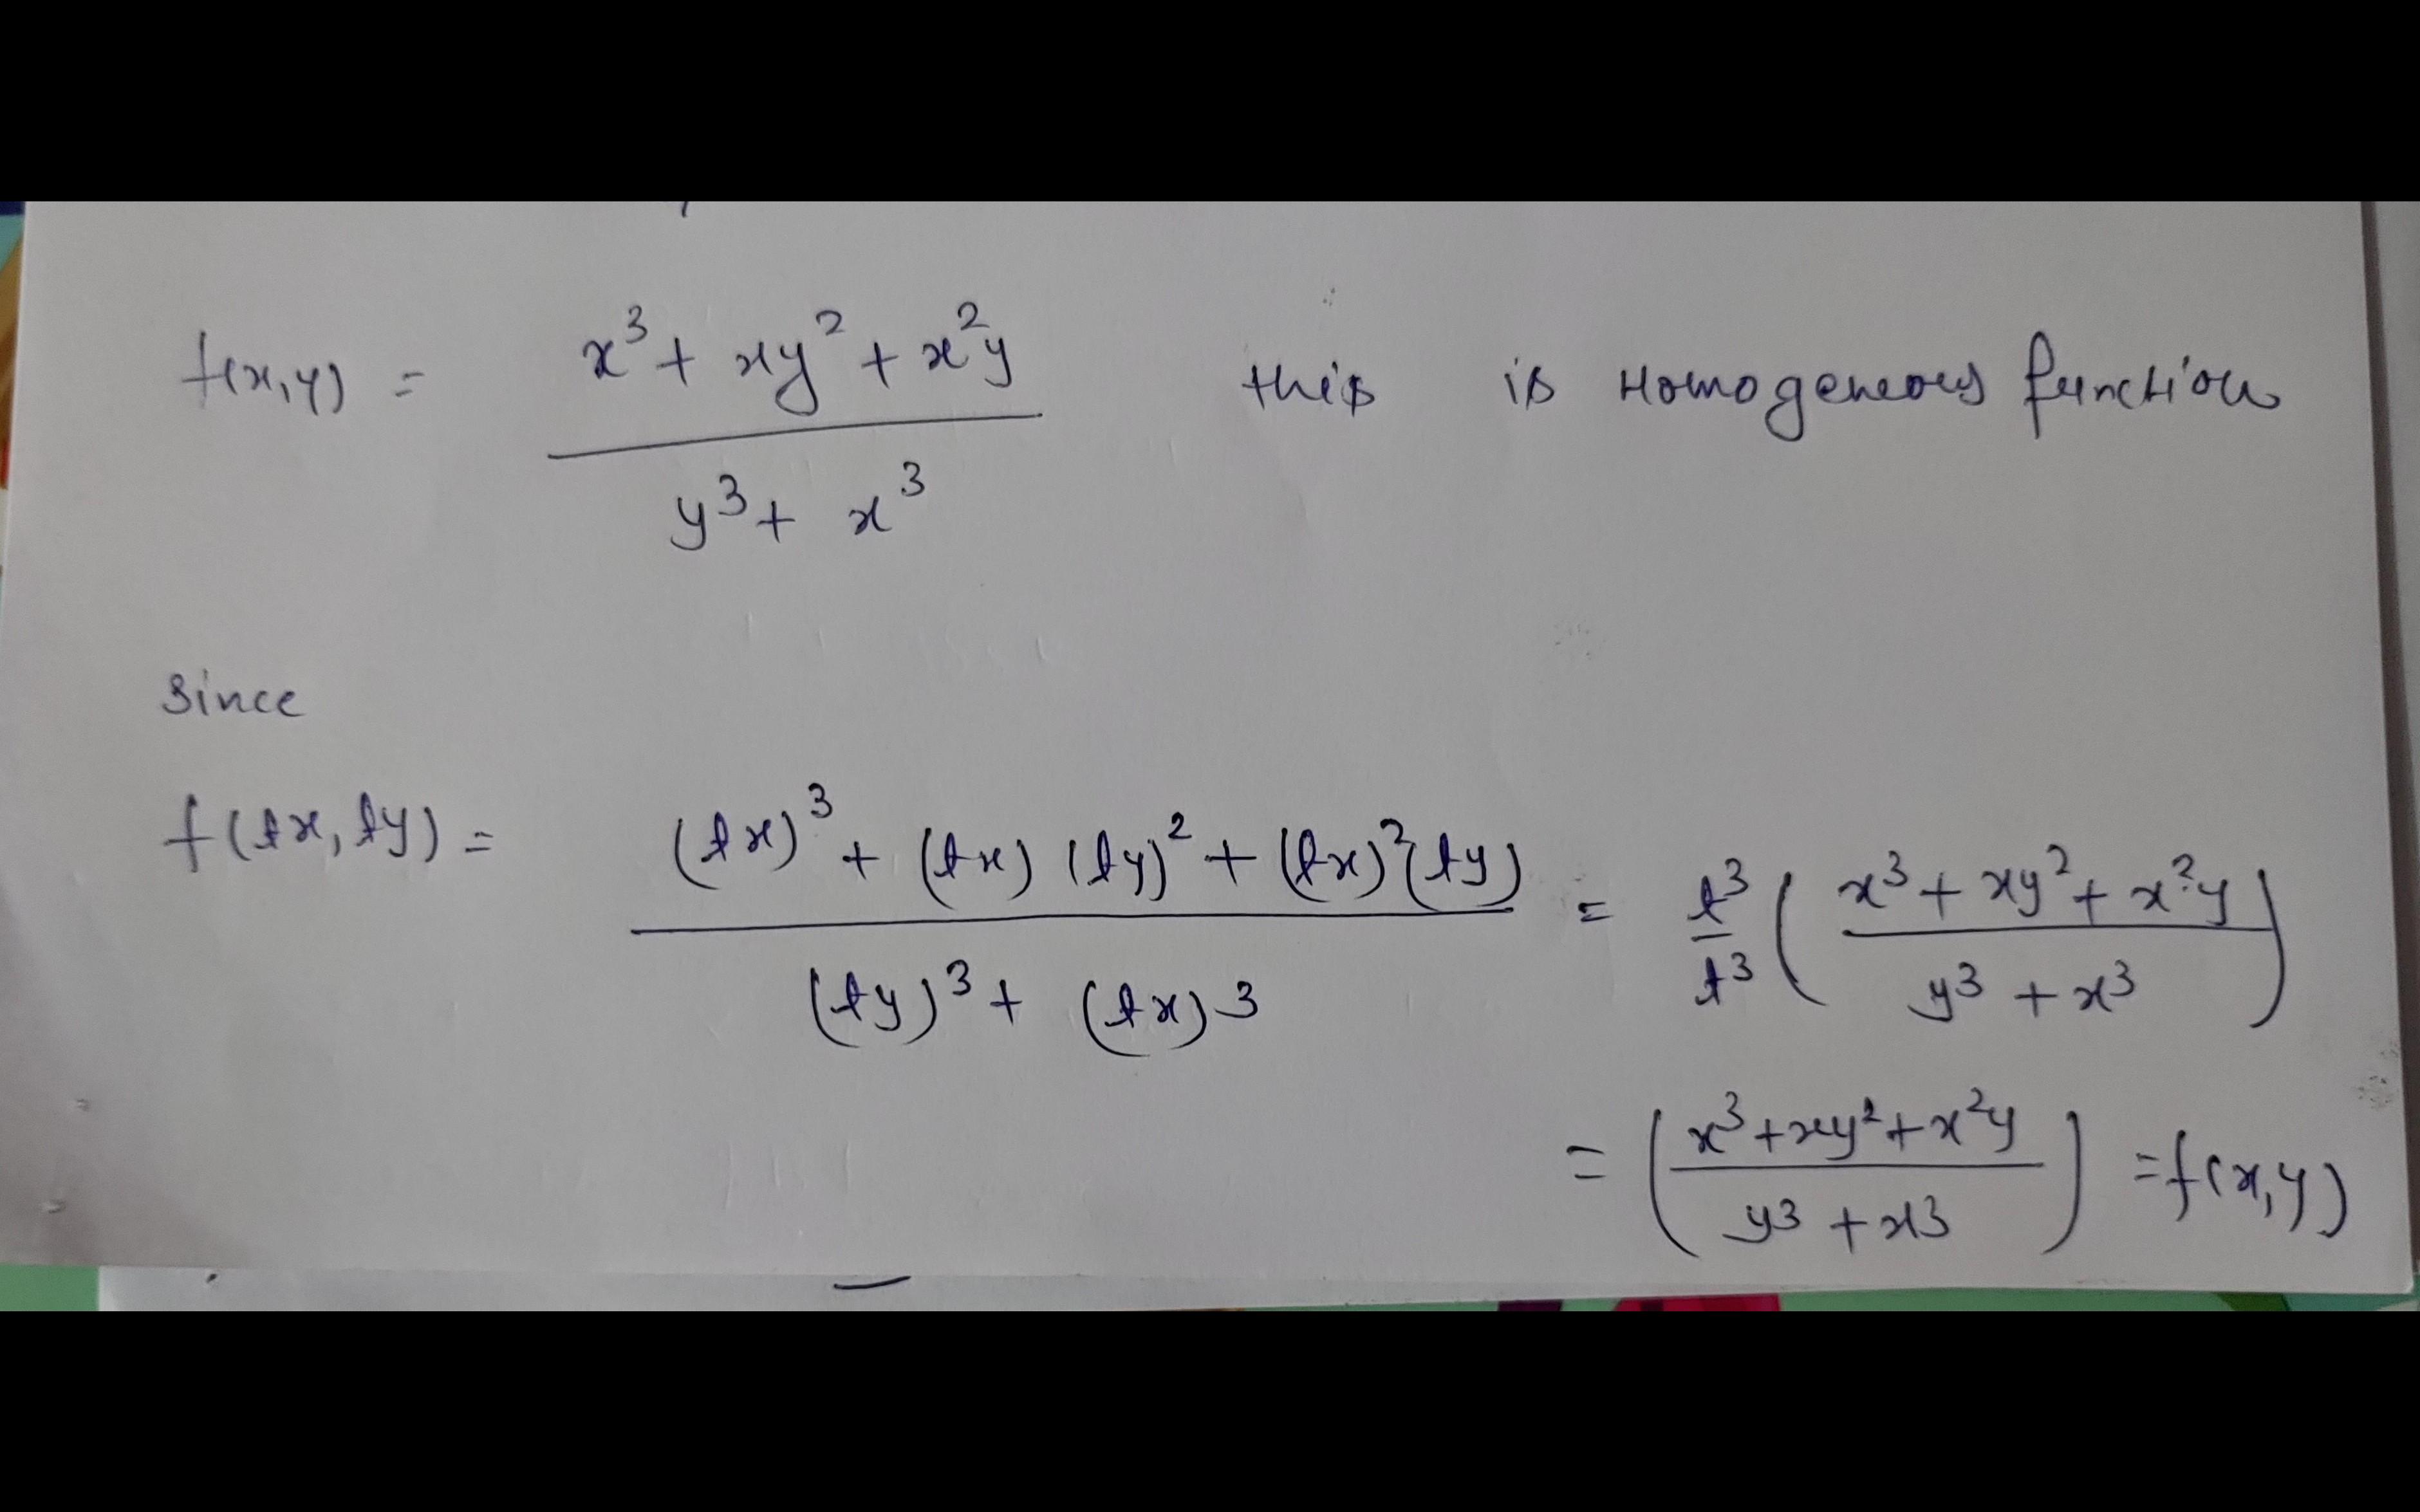 f(x,y) = x³ + xy² + x²y / y³ + x³ this is Homogeneous function
Since
f(tx, ty) = (tx)³ + (tx) (ty)² + (tx)²(ty) / (ty)³ + (tx)3 = t³/t³ ( x³ + xy² + x²y / y³ + x³ )
= ( x³ + xy² + x²y / y3 + x3 ) = f(x,y)